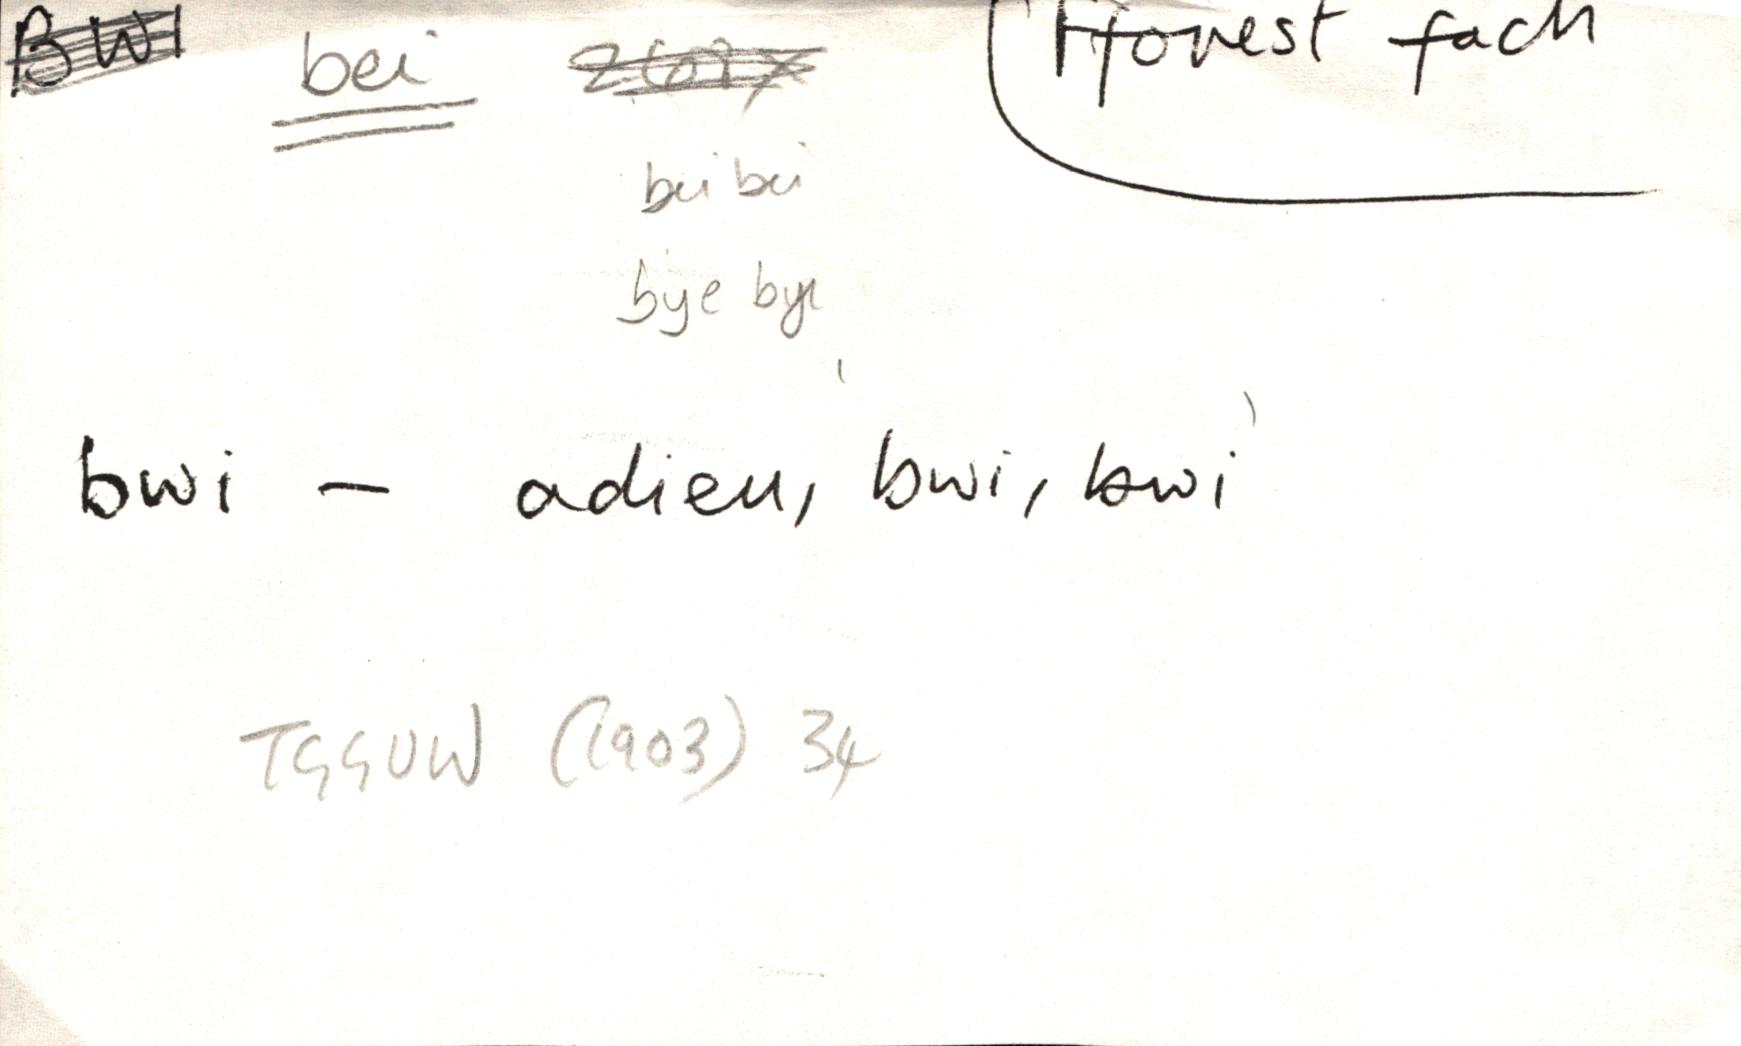 BWI bei Hovest fach
bei bei
bye bye
bwi – adieu, bwi, bwi
TGGUW (1903) 34